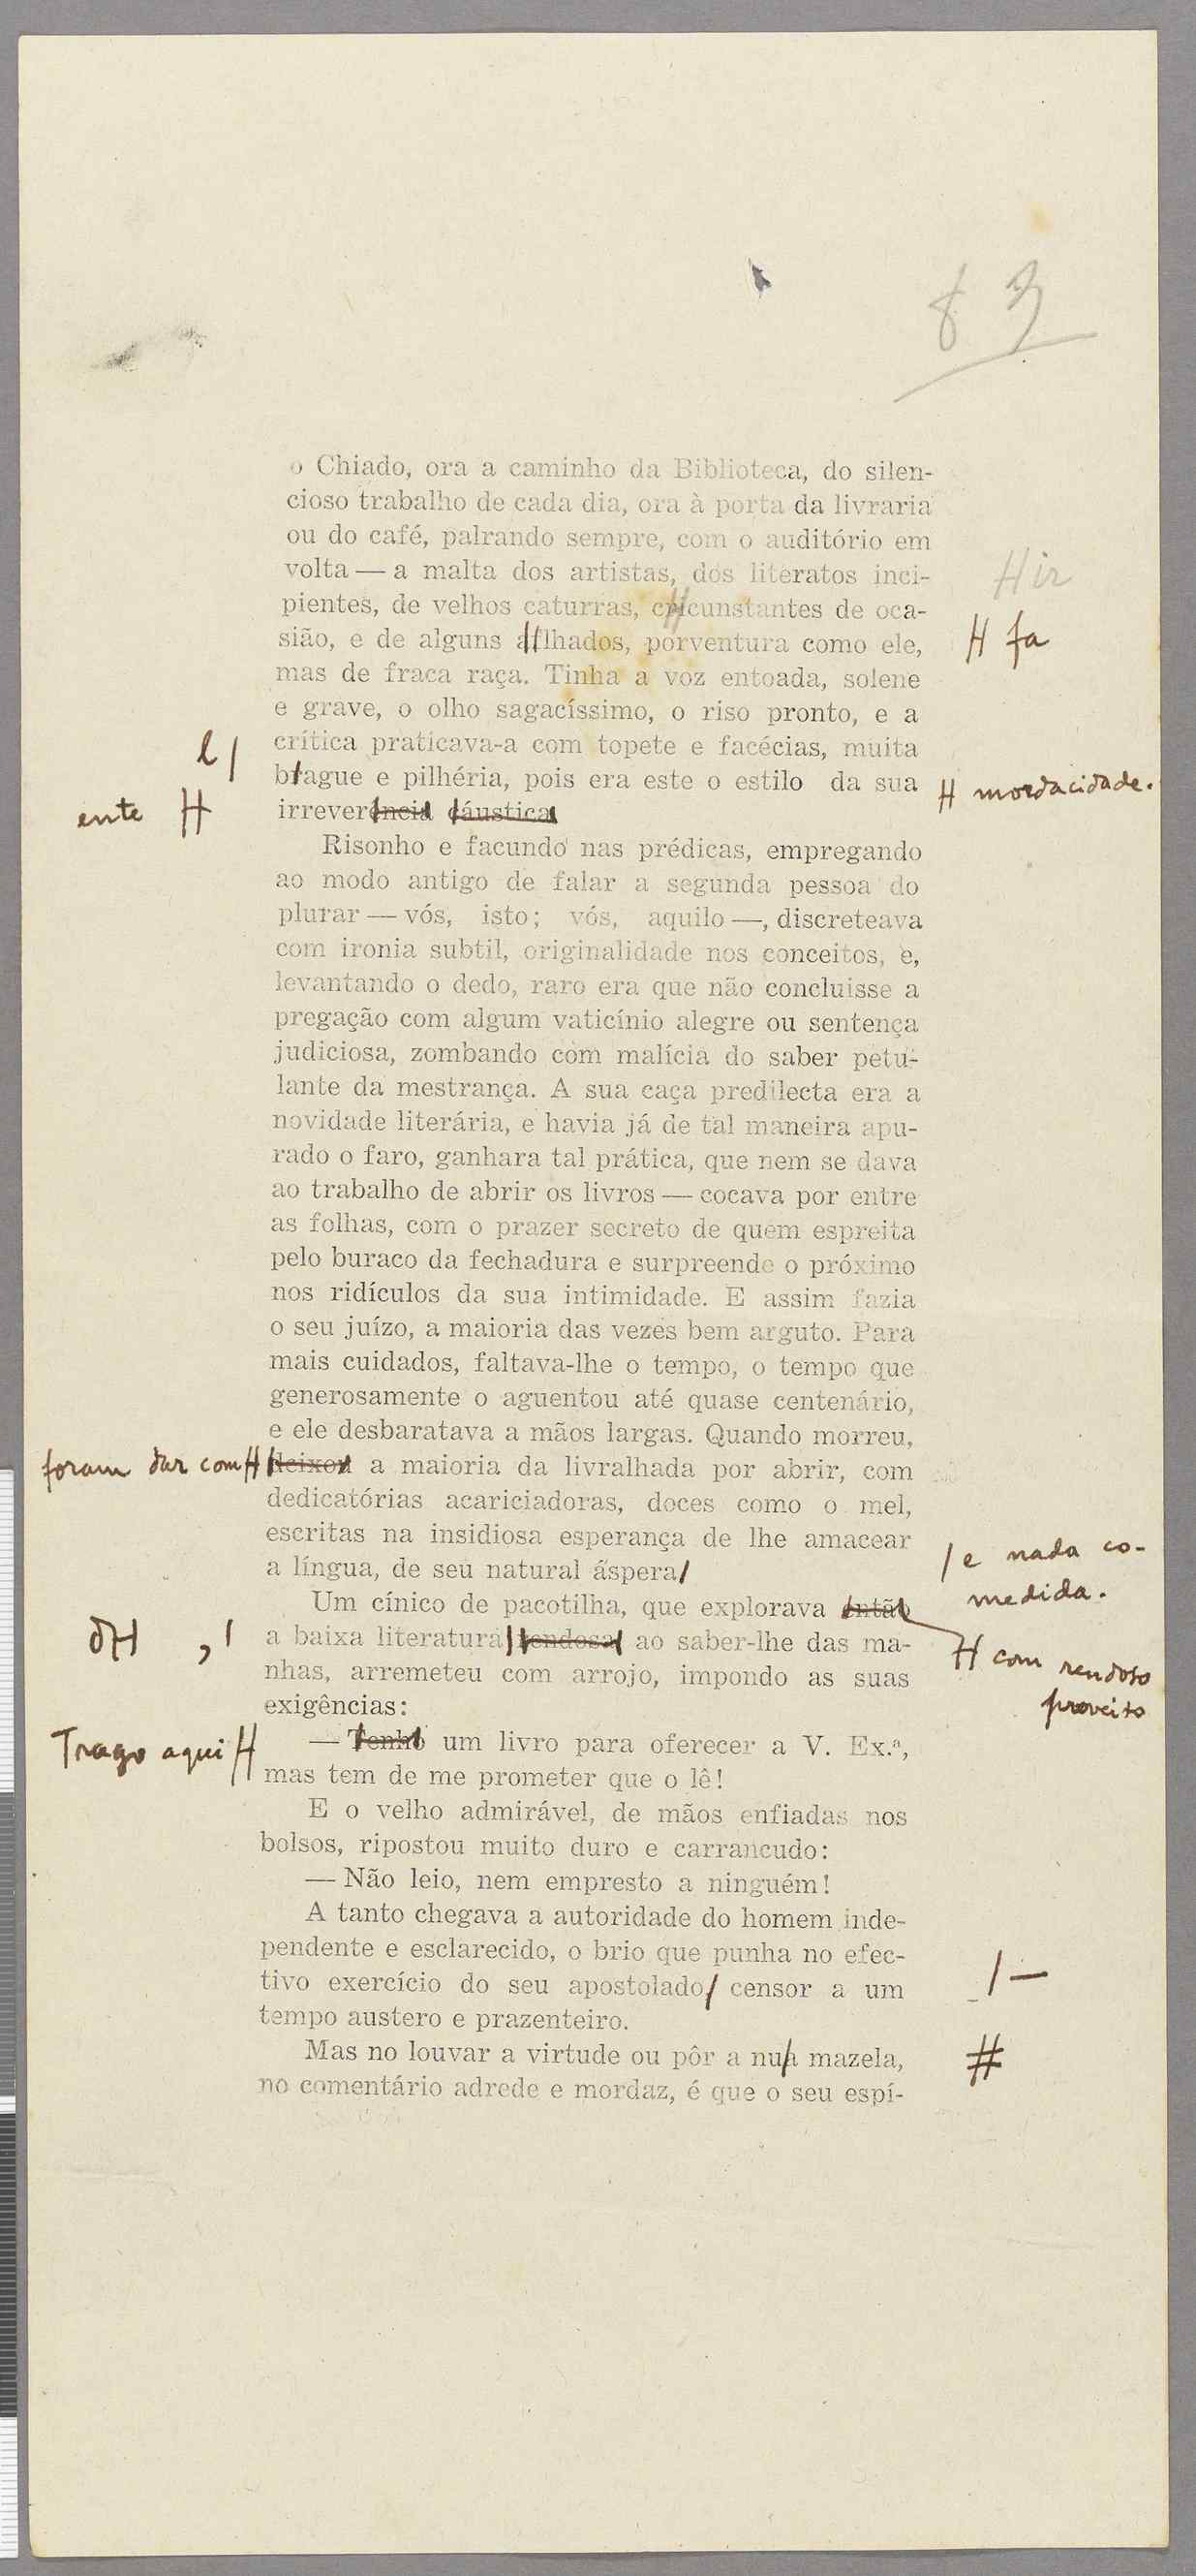 83
o Chiado, ora a caminho da Biblioteca, do silen-
cioso trabalho de cada dia, ora à porta da livraria
ou do café, palrando sempre, com o auditório em
volta — a malta dos artistas, dos literatos inci-
H ir
pientes, de velhos caturras, cricunstantes de oca-
sião, e de alguns afilhados, porventura como ele,
H fa
mas de fraca raça. Tinha a voz entoada, solene
e grave, o olho sagacíssimo, o riso pronto, e a
crítica praticava-a com topete e facécias, muita
l /
b/ague e pilhéria, pois era este o estilo da sua
H mordacidade.
ente H
irreverência cáustica
Risonho e facundo nas prédicas, empregando
ao modo antigo de falar a segunda pessoa do
plurar — vós, isto; vós, aquilo —, discreteava
com ironia subtil, originalidade nos conceitos, e,
levantando o dedo, raro era que não concluisse a
pregação com algum vaticínio alegre ou sentença
judiciosa, zombando com malícia do saber petu-
lante da mestrança. A sua caça predilecta era a
novidade literária, e havia já de tal maneira apu-
rado o faro, ganhara tal prática, que nem se dava
ao trabalho de abrir os livros — cocava por entre
as folhas, com o prazer secreto de quem espreita
pelo buraco da fechadura e surpreende o próximo
nos ridículos da sua intimidade. E assim fazia
o seu juízo, a maioria das vezes bem arguto. Para
mais cuidados, faltava-lhe o tempo, o tempo que
generosamente o aguentou até quase centenário,
e ele desbaratava a mãos largas. Quando morreu,
foram dar com H
deixou a maioria da livralhada por abrir, com
dedicatórias acariciadoras, doces como o mel,
escritas na insidiosa esperança de lhe amacear
a língua, de seu natural áspera/
/ e nada co-
medida.
Um cínico de pacotilha, que explorava então
a baixa literatura rendosa ao saber-lhe das ma-
H com rendoso
proveito
nhas, arremeteu com arrojo, impondo as suas
exigências:
Trago aqui H
— Tenho um livro para oferecer a V. Ex.ª,
mas tem de me prometer que o lê!
E o velho admirável, de mãos enfiadas nos
bolsos, ripostou muito duro e carrancudo:
— Não leio, nem empresto a ninguém!
A tanto chegava a autoridade do homem inde-
pendente e esclarecido, o brio que punha no efec-
tivo exercício do seu apostolado/ censor a um
/ —
tempo austero e prazenteiro.
Mas no louvar a virtude ou pôr a nu/a mazela,
#
no comentário adrede e mordaz, é que o seu espí-